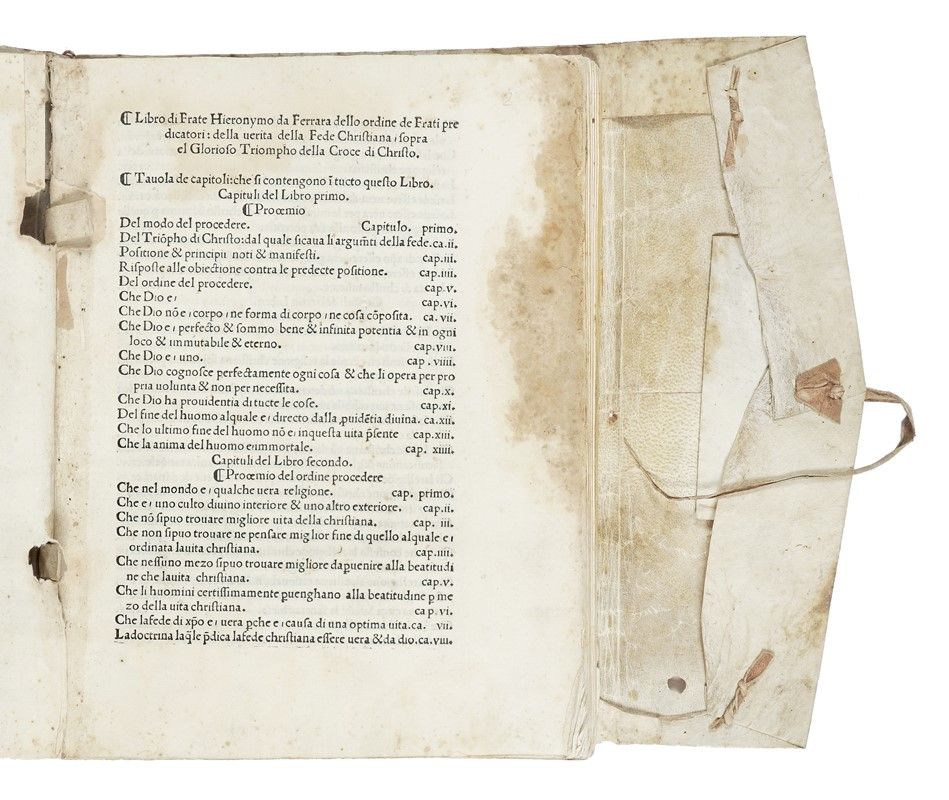 ⸿ Libro di Frate Hieronymo da Ferrara dello ordine de Frati pre
dicatori: della uerita della Fede Christiana, sopra
el Glorioso Triompho della Croce di Christo.
⸿ Tauola de capitoli: che si contengono ĩ tucto questo Libro.
Capituli del Libro primo.
⸿ Proœmio
Del modo del procedere. Capitulo. primo.
Del Triõpho di Christo: dal quale sicaua li argumẽti della fede. ca. ii.
Positione & principii noti & manifesti. cap. iii.
Risposte alle obiectione contra le predecte positione. cap. iiii.
Del ordine del procedere. cap. v.
Che Dio e, cap. vi.
Che Dio nõ e, corpo, ne forma di corpo, ne cosa cõposita. ca. vii.
Che Dio e, perfecto & sommo bene & infinita potentia & in ogni
loco & immutabile & eterno. cap. viii.
Che Dio e, uno. cap. viiii.
Che Dio cognosce perfectamente ogni cosa & che li opera per pro
pria uolunta & non per necessita. cap. x.
Che Dio ha prouidentia di tucte le cose. cap. xi.
Del fine del huomo alquale e, directo dalla ꝓuidẽtia diuina. ca. xii.
Che lo ultimo fine del huomo nõ e, inquesta uita p̃sente cap. xiii.
Che la anima del huomo e, immortale. cap. xiiii.
Capituli del Libro secondo.
⸿ Proœmio del ordine procedere
Che nel mondo e, qualche uera religione. cap. primo.
Che e, uno culto diuino interiore & uno altro exteriore. cap. ii.
Che nõ sipuo trouare migliore uita della christiana. cap. iii.
Che non sipuo trouare ne pensare miglior fine di quello alquale e,
ordinata lauita christiana. cap. iiii.
Che nessuno mezo sipuo trouare migliore dapuenire alla beatitudi
ne che lauita christiana. cap. v.
Che li huomini certissimamente puenghano alla beatitudine p me
zo della uita christiana. cap. vi.
Che lafede di xp̃o e, uera pche e, causa di una optima uita. ca. vii.
Ladoctrina laq̃le p̃dica lafede christiana essere uera & da dio. ca. viii.